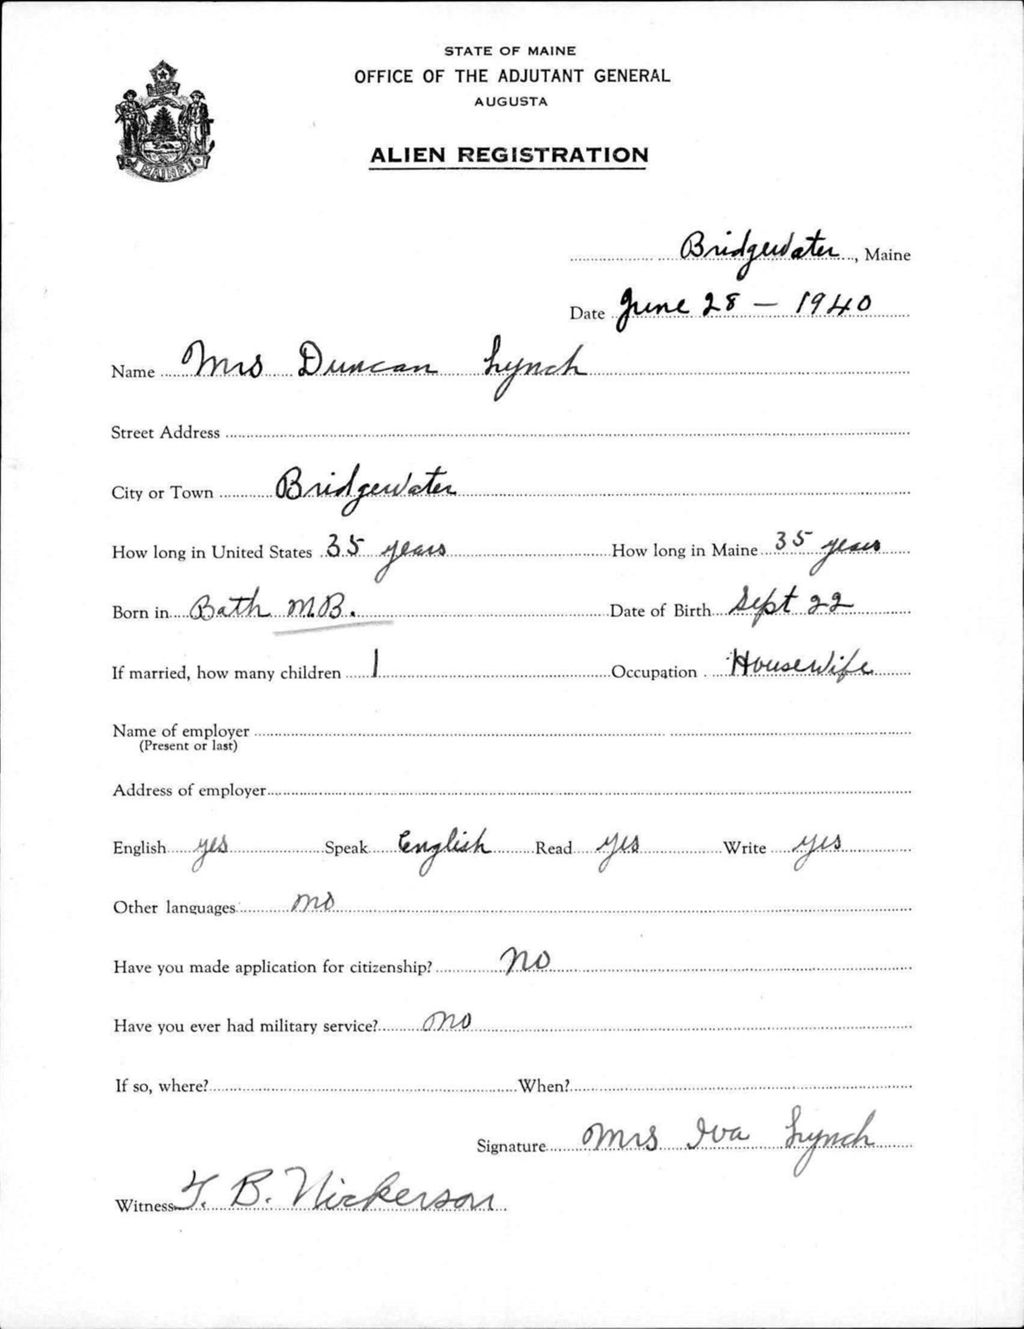 STATE OF MAINE
OFFICE OF THE ADJUTANT GENERAL
AUGUSTA
ALIEN REGISTRATION
MAINE
Bridgewater, Maine
Date June 28 - 1940
Name Mrs Duncan Lynch
Street Address
City or Town Bridgewater
How long in United States 35 years How long in Maine 35 years
Born in Bath N.B. Date of Birth Sept 22
If married, how many children 1 Occupation Housewife
Name of employer
(Present or last)
Address of employer
English yes Speak English Read yes Write yes
Other languages no
Have you made application for citizenship? No
Have you ever had military service? no
If so, where? When?
Signature Mrs Iva Lynch
Witness T. B. Nickerson